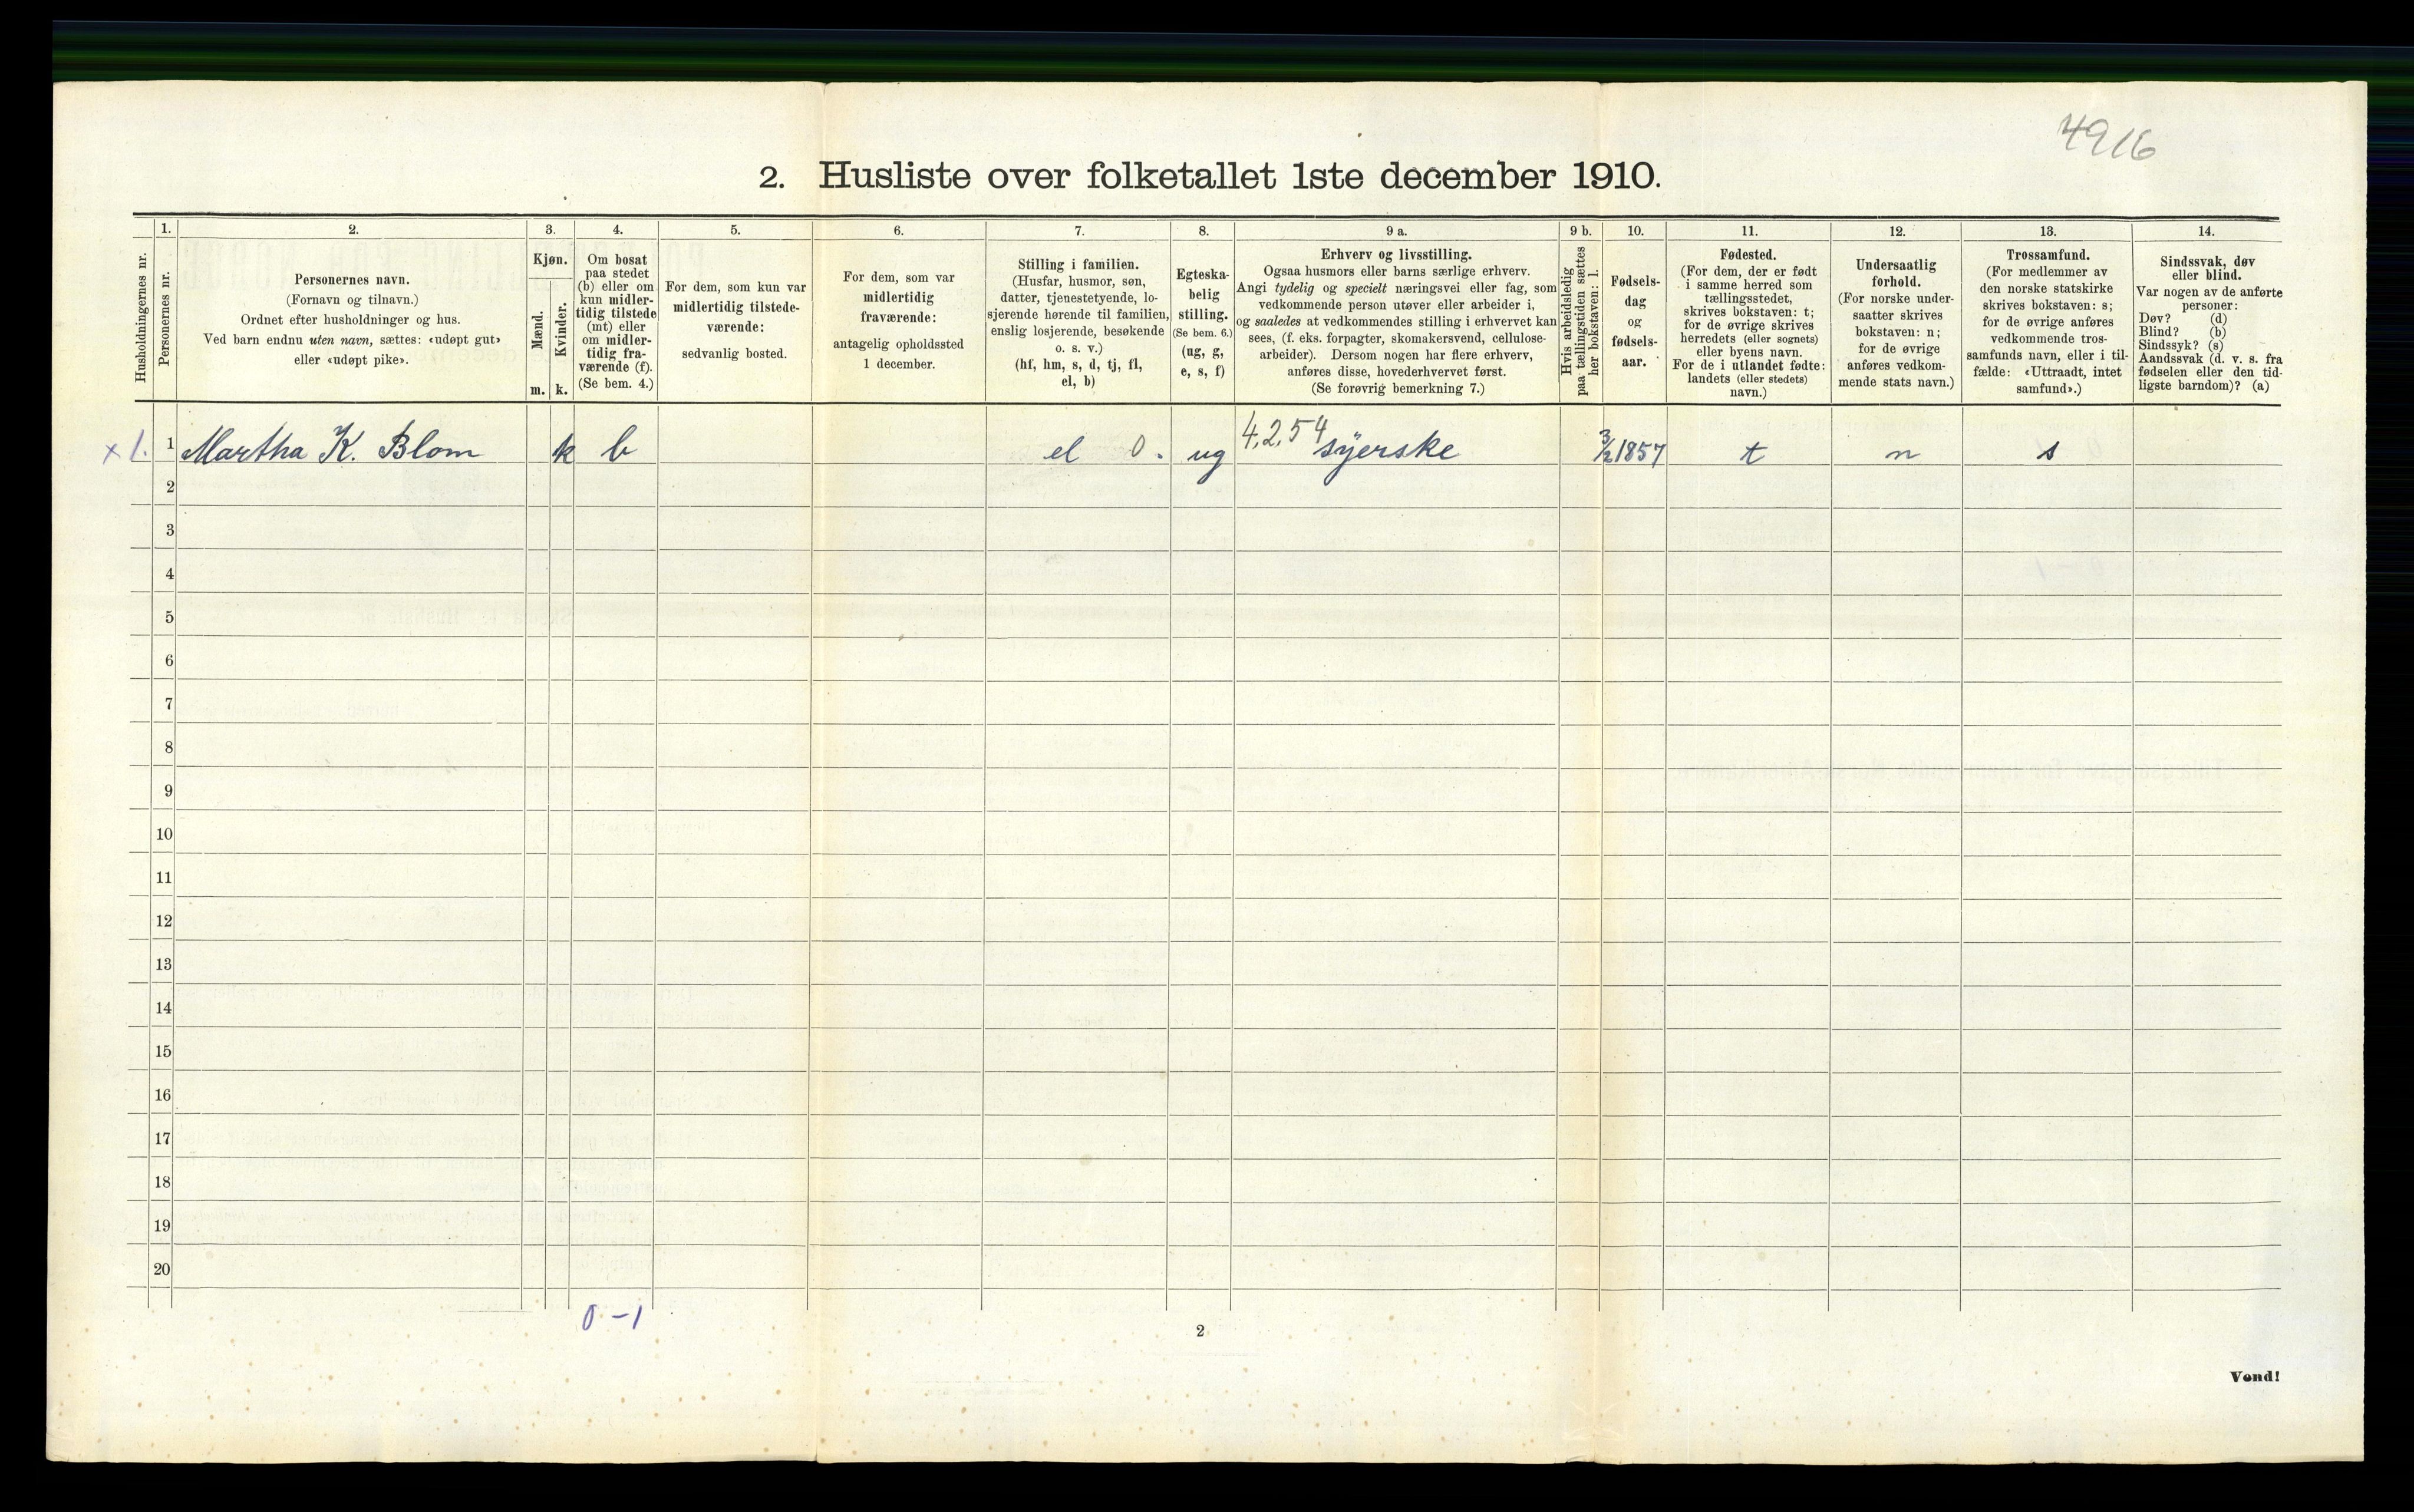 4916
2. Husliste over folketallet 1ste december 1910.
Husholdningernes nr.
1.
Personernes nr.
2.
Personernes navn.
(Fornavn og tilnavn.)
Ordnet efter husholdninger og hus.
Ved barn endnu uten navn, sættes: «udøpt gut»
eller «udøpt pike».
3.
Kjøn.
Mænd.
m.
Kvinder.
k.
4.
Om bosat
paa stedet
(b) eller om
kun midler-
tidig tilstede
(mt) eller
om midler-
tidig fra-
værende (f).
(Se bem. 4.)
5.
For dem, som kun var
midlertidig tilstede-
værende:
sedvanlig bosted.
6.
For dem, som var
midlertidig
fraværende:
antagelig opholdssted
1 december.
7.
Stilling i familien.
(Husfar, husmor, søn,
datter, tjenestetyende, lo-
sjerende hørende til familien,
enslig losjerende, besøkende
o. s. v.)
(hf, hm, s, d, tj, fl,
el, b)
8.
Egteska-
belig
stilling.
(Se bem. 6.)
(ug, g,
e, s, f)
9 a.
Erhverv og livsstilling.
Ogsaa husmors eller barns særlige erhverv.
Angi tydelig og specielt næringsvei eller fag, som
vedkommende person utøver eller arbeider i,
og saaledes at vedkommendes stilling i erhvervet kan
sees, (f. eks. forpagter, skomakersvend, cellulose-
arbeider). Dersom nogen har flere erhverv,
anføres disse, hovederhvervet først.
(Se forøvrig bemerkning 7.)
9 b.
Hvis arbeidsledig
paa tællingstiden sættes
her bokstaven: l.
10.
Fødsels-
dag
og
fødsels-
aar.
11.
Fødested.
(For dem, der er født
i samme herred som
tællingsstedet,
skrives bokstaven: t;
for de øvrige skrives
herredets (eller sognets)
eller byens navn.
For de i utlandet fødte:
landets (eller stedets)
navn.)
12.
Undersaatlig
forhold.
(For norske under-
saatter skrives
bokstaven: n;
for de øvrige
anføres vedkom-
mende stats navn.)
13.
Trossamfund.
(For medlemmer av
den norske statskirke
skrives bokstaven: s;
for de øvrige anføres
vedkommende tros-
samfunds navn, eller i til-
fælde: «Uttraadt, intet
samfund».)
14.
Sindssvak, døv
eller blind.
Var nogen av de anførte
personer:
Døv? (d)
Blind? (b)
Sindssyk? (s)
Aandssvak (d. v. s. fra
fødselen eller den tid-
ligste barndom)? (a)
x 1. 1 Martha K. Blom k b el 0. ug 4,2,54 syerske 3/2 1857 t n s
2
3
4
5
6
7
8
9
10
11
12
13
14
15
16
17
18
19
20
0 - 1
2
Vend!